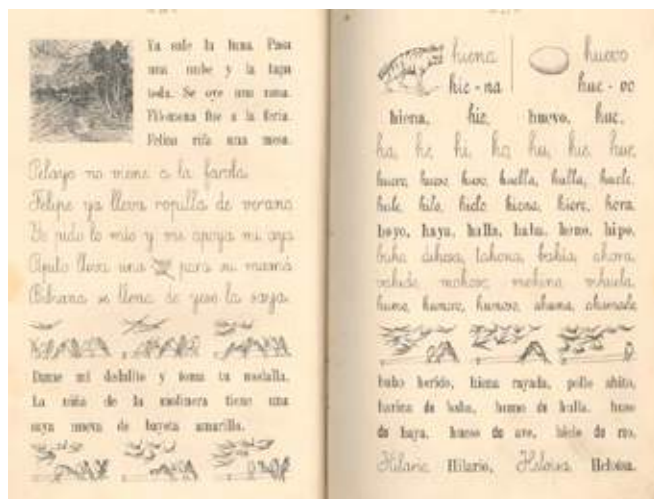 Ya sale la luna. Pasa
una nube y la tapa
toda. Se oye una rana.
Filomena fue a la feria.
Felino rifa una mesa.
Pelayo no viene a la farola.
Felipe ya lleva ropilla de verano
Yo pido lo mío y me apoya mi aya
lleva una para su mamá
se llena de yeso la saya.
Dame mi dedalito y toma tu medalla.
La niña de la molinera tiene una
saya nueva de bayeta amarilla.
hiena
huevo
hie - na
hue - vo
hiena, hie, huevo, hue,
ha, he, hi, ho, hu, hie, hue,
huevo, hueso, huella, hulla, huele,
hule, hilo, hielo, hiena, hiere, hora,
hoyo, haya, halla, haba, heno, hipo,
bahía, ahora,
mohoso, mohína, vihuela,
humo, humea, ahuma, ahumada
buho herido, hiena rayada, pollo ahíto,
harina de haba, humo de hulla, huso
de haya, hueso de ave, hielo de río,
Hilario, Hilario, Heloísa, Heloísa.